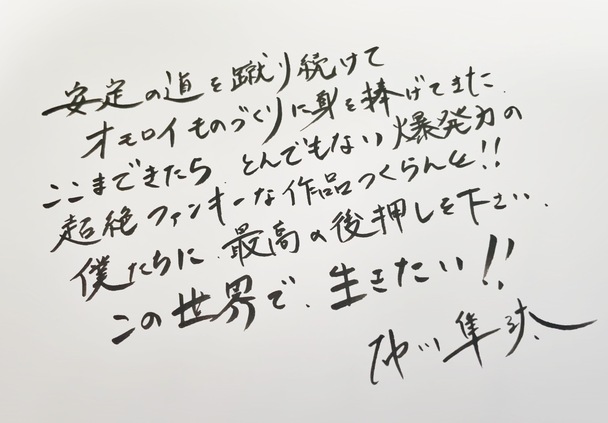 安定の道を蹴り続けて
オモロイものづくりに身を捧げてきた.
ここまできたら とんでもない爆発力の
超絶ファンキーな作品つくらんと!!
僕たちに.最高の後押しを下さい.
この世界で.生きたい!!
川隼